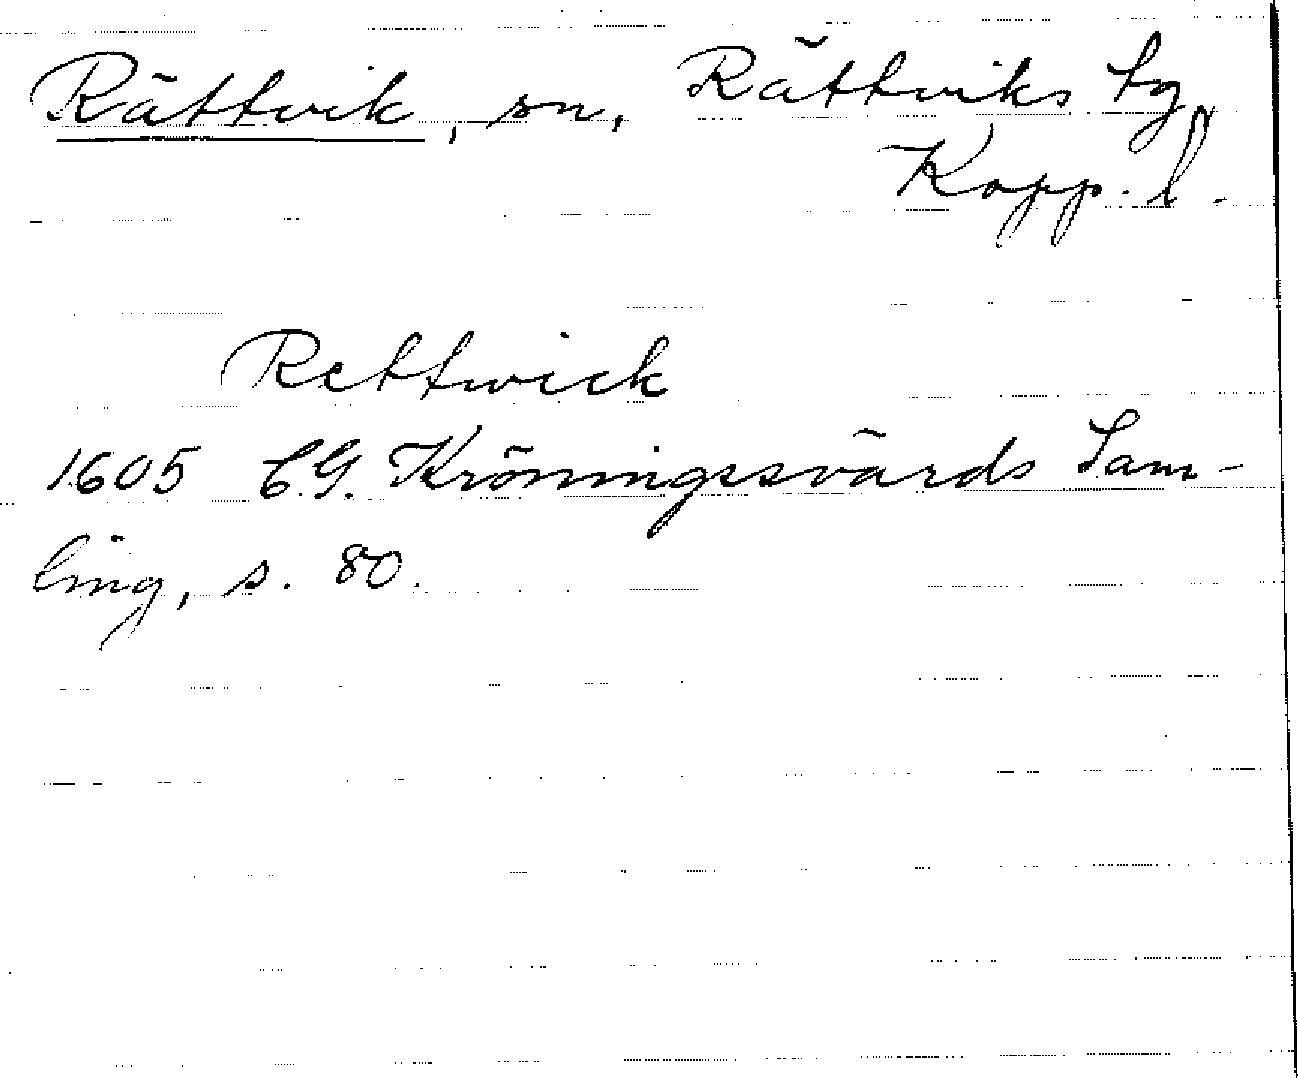 Rättvik, sn, Rättviks tg
Kopp. l.
Rettwick
1605 C.G. Kröningssvärds Sam-
ling, s. 80.